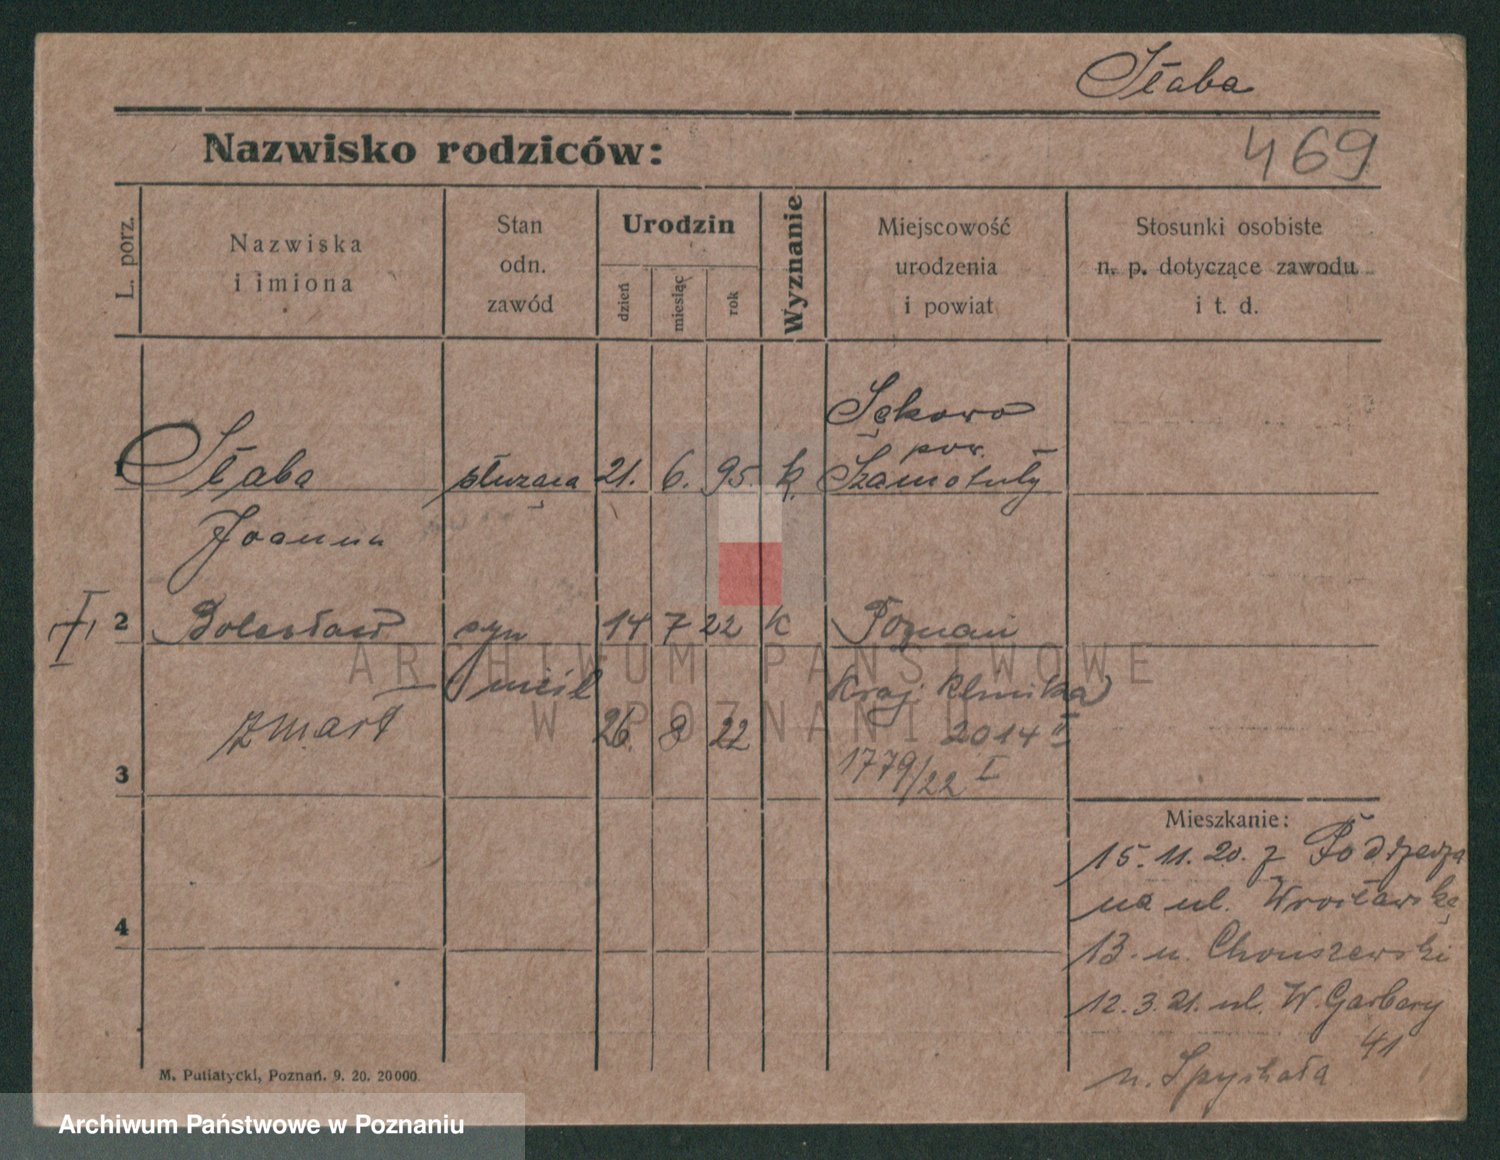 Słaba
Nazwisko rodziców:
469
L. porz.
Nazwiska
i imiona
Stan
odn.
zawód
Urodzin
dzień
miesiąc
rok
Wyznanie
Miejscowość
urodzenia
i powiat
Stosunki osobiste
n. p. dotyczące zawodu
i t. d.
Sękowo
pow.
1 Słaba służąca 21. 6. 95. k. Szamotuły
Joanna
2 Bolesław syn 14 7 22 k Poznań
nieśl Kraj. Klinika
zmarł 26. 8 22 2014 II
1779/22 I
3
Mieszkanie:
15. 11. 20. z
na ul. Wrocławską
4
13. u. Chouszewski
12. 3. 21. ul. W. Garbary
41
u. Spychała
M. Putiatycki, Poznań. 9. 20. 20000.
ARCHIWUM PAŃSTWOWE
W POZNANIU
Archiwum Państwowe w Poznaniu